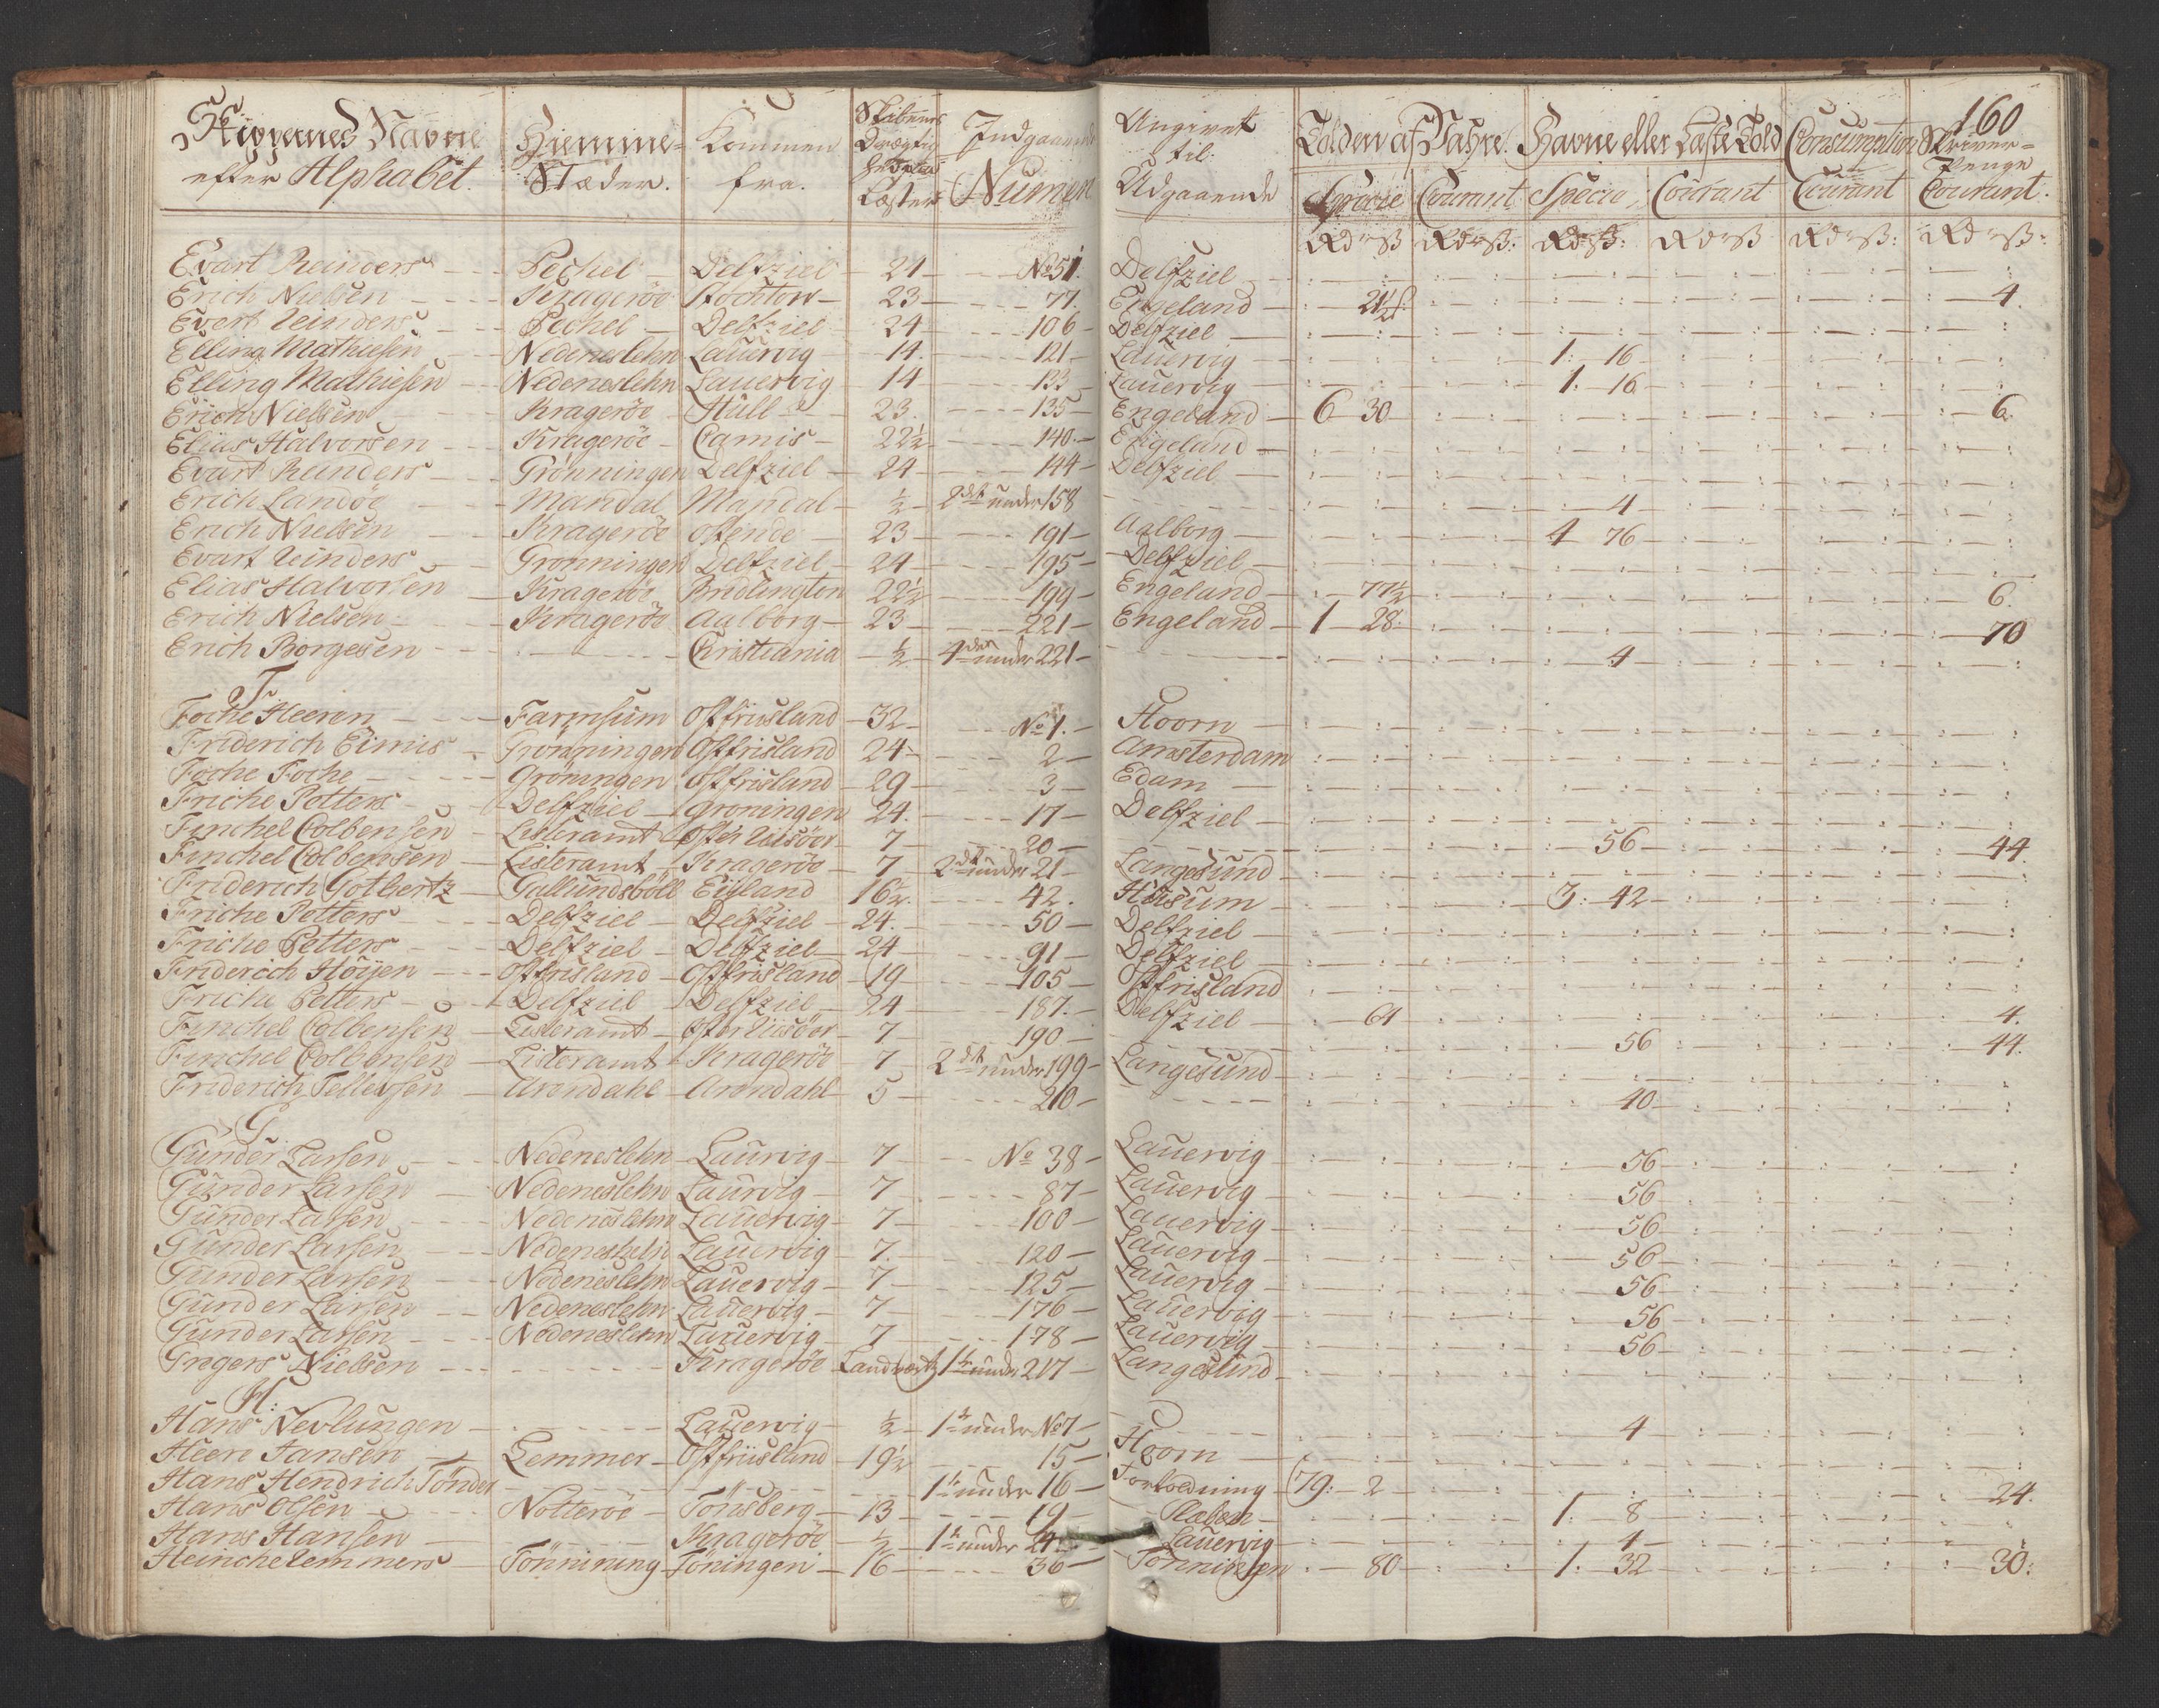 160
Skippernes Navne efter Alphabet. | Hiemme-Stæder. | Kommen fra. | Skibenes Drægtighed Læster | Indgaaende Numer | Angivet til Udgaaende | Tolden af Wahre. Specie Courant | Havne eller Læste Told Specie Courant | Consumption Courant | Skriver-Penge Courant.
Rdr ß | Rdr ß: | Rdr ß: | Rdr ß | Rdr ß: | Rdr ß:
Evart Reinders | Pechel | Delfziel | 24 | No 51. | Delfziel
Erich Nielsen | Krageröe | Stochton | 23 | 77. | Engeland | 21½ | 4.
Evert Reinders | Pechel | Delfziel | 24 | 106 | Delfziel
Elling Mathiesen | Nedeneslehn | Lauervig | 14. | 121 | Lauervig | 1: 16
Elling Mathiesen | Nedeneslehn | Lauervig | 14 | 133 | Lauervig | 1: 16
Erich Nielsen | Krageröe | Hüll | 23. | 135 | Engeland | 6 30 | 6.
Elias Halvorsen | Krageröe | Camis | 22½ | 140. | Engeland
Evart Reinders | Grönningen | Delfziel | 24 | 144 | Delfziel
Erich Landöe | Mandal | Mandal | ½ | 2det under 158 | 4
Erich Nielsen | Krageröe | Ostende | 23 | 191 | Aalborg | 4 76
Evart Reinders | Gronningen | Delfziel | 24 | 195 | Delfziel
Elias Halvorsen | Krageröe | Bridlington | 22½ | 199 | Engeland | 77½ | 6.
Erich Nielsen | Krageröe | Aalborg | 23 | 221 | Engeland | 1 28. | 70
Erich Borgesen | Christiania | ½ | 4den under 221 | 4
F.
Foche Heeren | Farmsum | Ostfriisland | 32 | No 1. | Hoorn
Friderich Eimis | Gronningen | Ostfrisland | 24 | 2 | Amsterdam
Foche Foche | Groningen | Ostfrisland | 29 | 3 | Edam
Friche Potters | Delfziel | Groningen | 24. | 17 | Delfziel
Finchel Colbensen | Listeramt | Oster Riisöer | 7 | 20 | 56 | 44.
Finchel Colbensen | Listeramt | Krageröe | 7 | 2det under 21 | Langesund
Friderich Gotbertz | Gallundsböll | Eiland | 16½. | 42. | Husum | 3: 42
Friche Petters | Delfziel | Delfziel | 24. | 50 | Delfziel
Friche Petters | Delfziel | Delfziel | 24 | 91 | Delfziel
Friderich Höijen | Ostfrisland | Ostfrisland | 19 | 105 | Ostfrisland
Friche Petters | Delfziel | Delfziel | 24 | 187. | Delfziel | 64 | 4.
Finchel Colbensen | Listeramt | Oster Riisöer | 7 | 190 | 56 | 44.
Finchel Colbensen | Listeramt | Krageröe | 7 | 2det under 199 | Langesund
Friderich Tellefsen | Arendahl | Arendahl | 5 | 210 | 40
G
Gunder Larsen | Nedeneslehn | Laurvig | 7 | No 38 | Lauervig | 56
Gunder Larsen | Nedeneslehn | Laurvig | 7 | 87 | Lauervig | 56
Gunder Larsen | Nedeneslehn | Lauervig | 7 | 100 | Lauervig | 56
Gunder Larsen | Nedeneslehn | Lauervig | 7 | 120 | Lauervig | 56
Gunder Larsen | Nedeneslehn | Lauervig | 7 | 125 | Lauervig | 56
Gunder Larsen | Nedeneslehn | Lauervig | 7 | 176 | Lauervig | 56
Gunder Larsen | Nedeneslehn | Lauervig | 7 | 178 | Lauervig | 56
Gregers Nielsen | Krageröe | Landvertz | 1te under 217 | Langesund
H:
Hans Nevlungen | Lauervig | ½ | 1te under No 7 | 4
Heere Jansen | Lemmer | Ostfriisland | 19½ | 15 | Hoorn
Hans Hendrich Tönder | 1te under 16 | Fortoldning | 79: 2 | 24.
Hans Olsen | Notteröe | Tönsberg | 13 | 19 | 1. 8
Hans Hansen | Krageröe | ½ | 1te under 24 | Lauervig | 4
Heinche Remmers | Tönnining | Töningen | 16 | 36 | Tönningen | 80 | 1. 32 | 30: